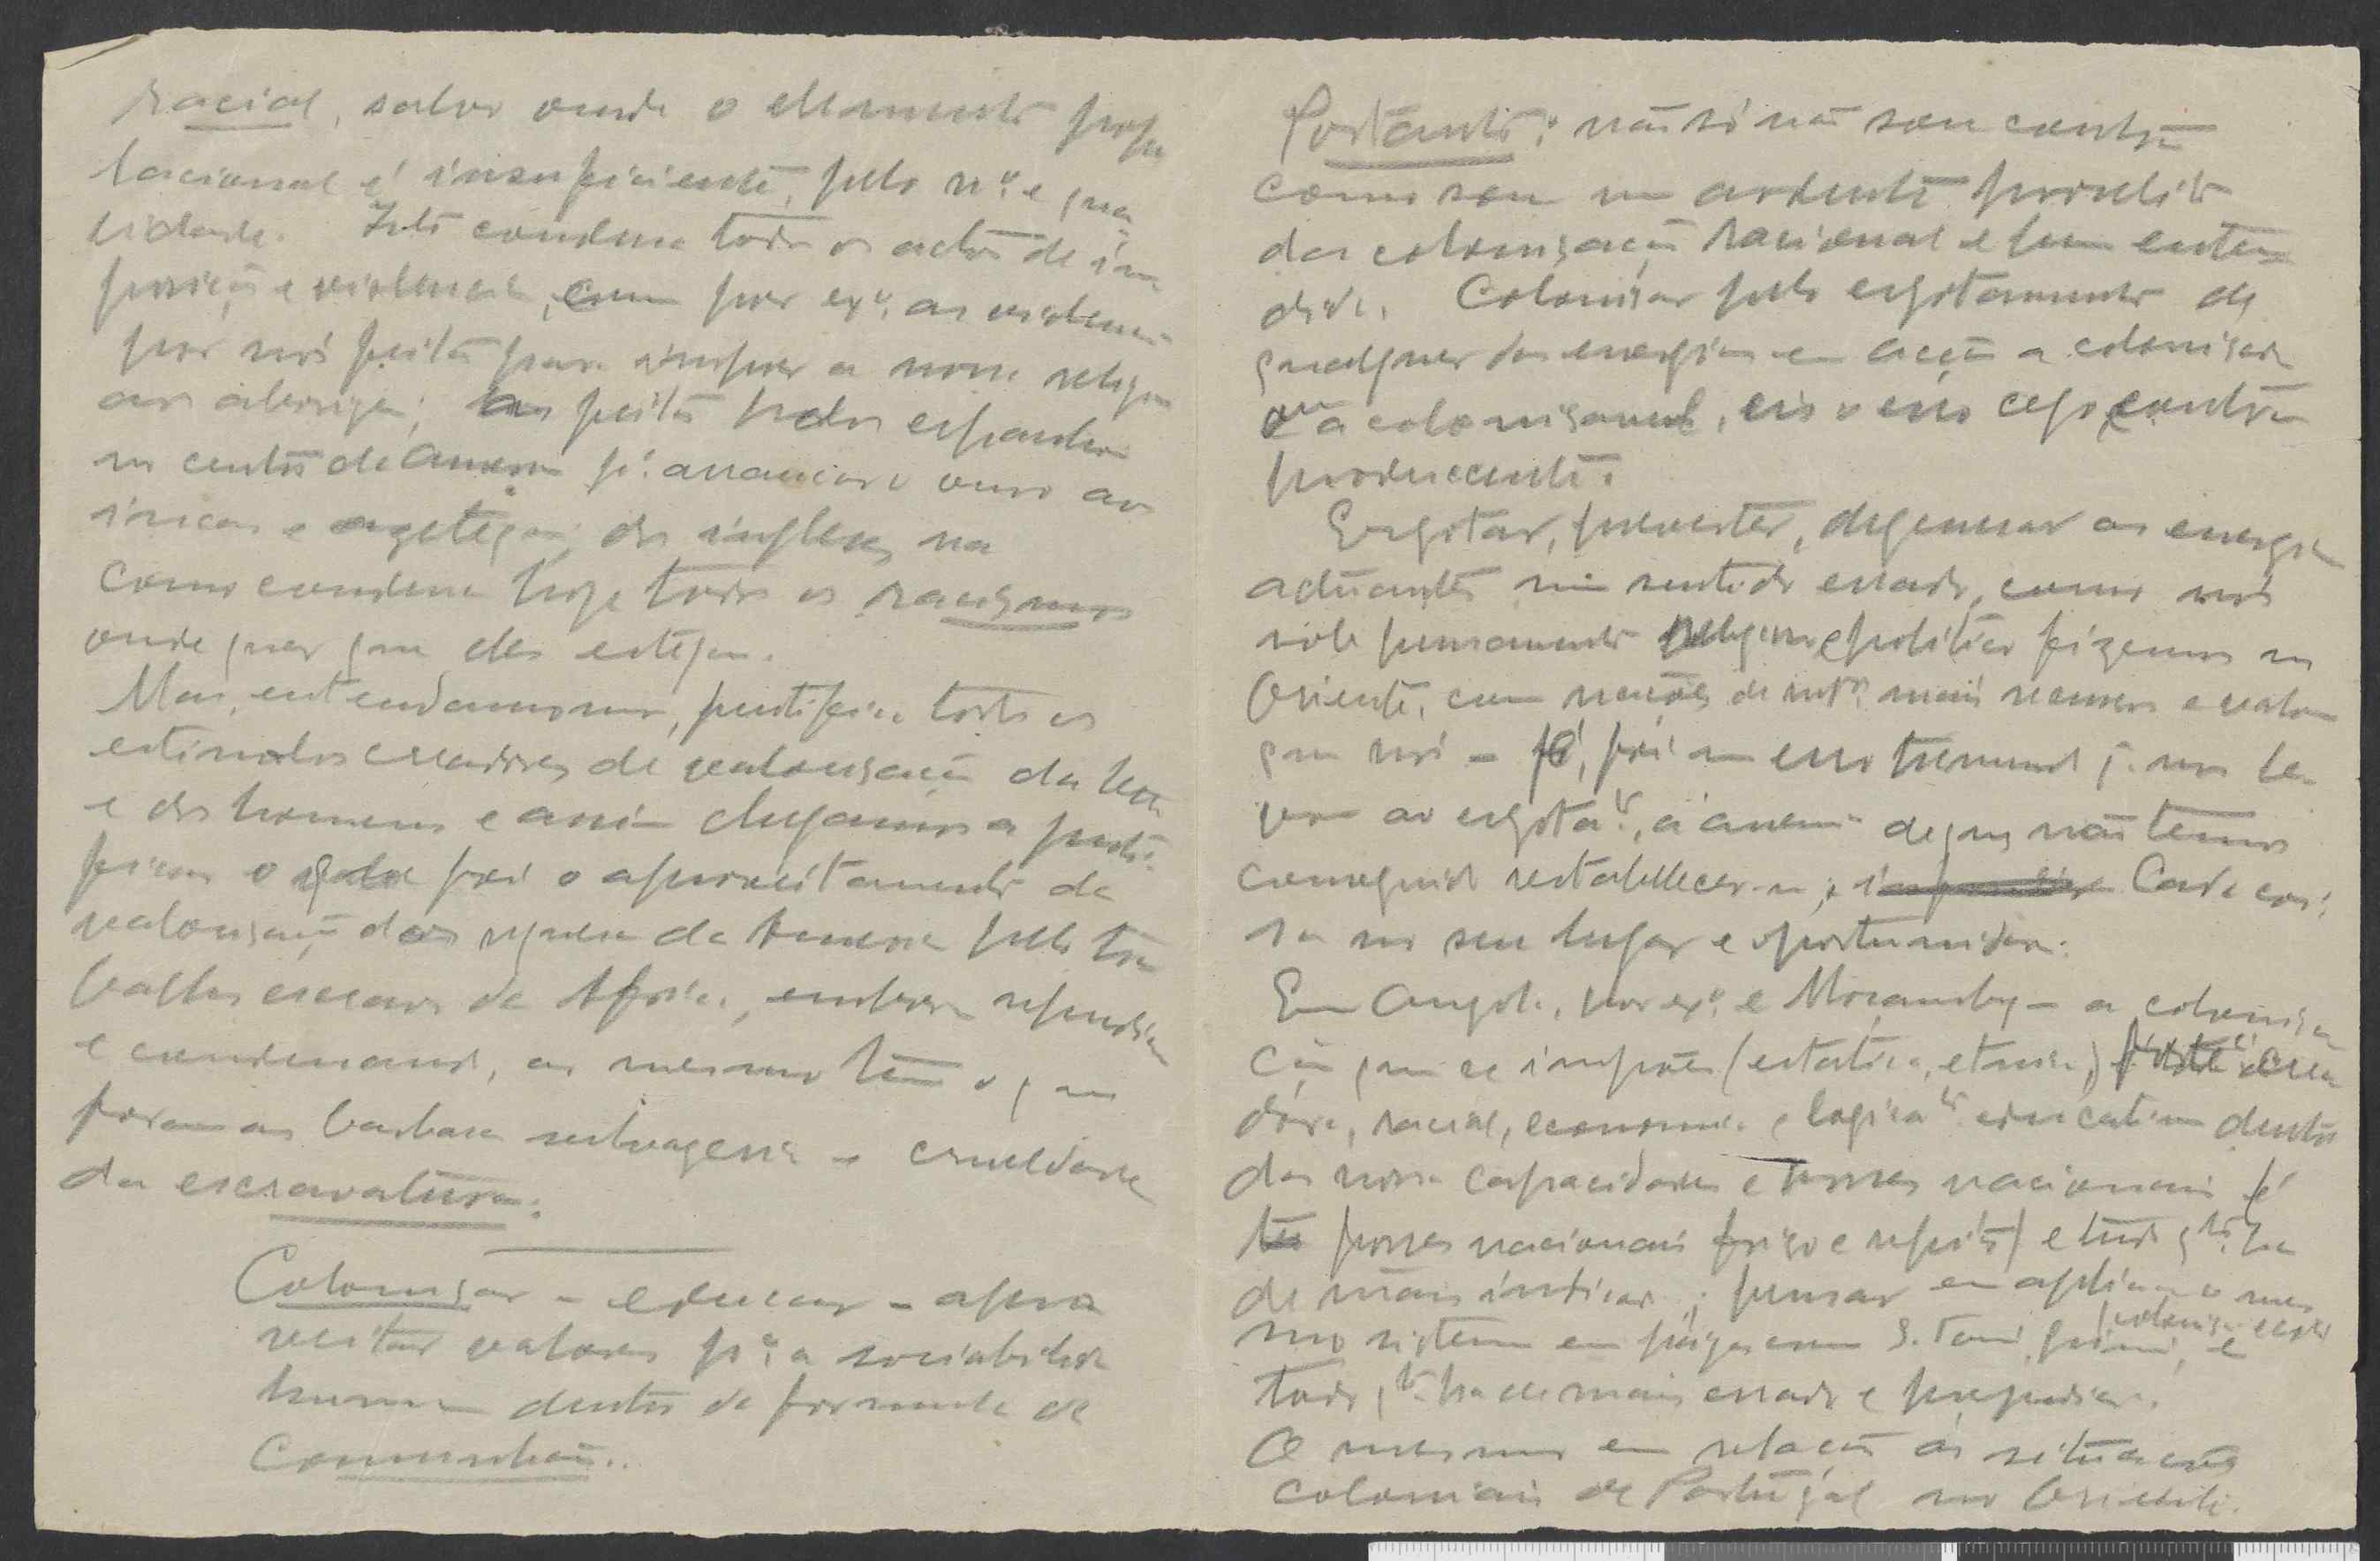 racial, salvo onde o elemento popu
lacional é insuficiente, pelo n.º e qua
lidade. Isto condena todos os actos de im
posição e violencia, como por ex.º, as violencias
por nós feitas para impor a nossa religião
aos aborigenes; as feitas pelos espanhois
no centro de America p.ª arrancar o ouro aos
incas e aztecas; dos ingleses na
como condena hoje todos os racismos
onde quer que eles estejam.
Mas, entendamo-nos, justifica todos os
estimulos creadores de valorisação da terra
e dos homens e assim chegamos a justi-
ficar o que foi o aproveitamento da
valorisação das riquezas da America pelo tra
balho escravo da Africa, embora repudiando
e condenando, ao mesmo tempo o que
foram as barbaras selvagerias e crueldades
da escravatura.
Colonisar - educar - apro
veitar valores p.ª a sociabilidade
humana dentro da formula de
Comunhão..
Portanto: não só não sou contra
como sou um ardente proselito
da colonisação racional e bem enten
dida. Colonisar pelo esgotamento de
qualquer das energias em acção a colonisadora
ou a colonisavel, eis o erro cego, contra
producente.
Esgotar, preverter, degenerar as energias
actuantes num sentido errado, como nós
sob pensamento religioso e politico fizemos no
Oriente, com nações de mt.º mais recursos e valores
que nós - foi um erro tremendo q. nos le-
vou ao esgotam.to, á anemia de que não temos
conseguido restabelecer-nos; Cada coi-
sa no seu lugar e oportunidade.
Em Angola, por ex.º e Moçambique - a colonisa
ção que se impõe (estatica, etnica,) creadora
dora, racial, economica e logica.te educativa dentro
das nossas capacidades e posses nacionais (é
posses nacionais friso e repito) e tudo q.to ha
de mais indicado; pensar em aplicar o mes
mo sistema em S. Tomé, Guiné, é
todo q.to ha de mais errado e prejudicial.
O mesmo em relação ás situações
coloniais de Portugal no Oriente.